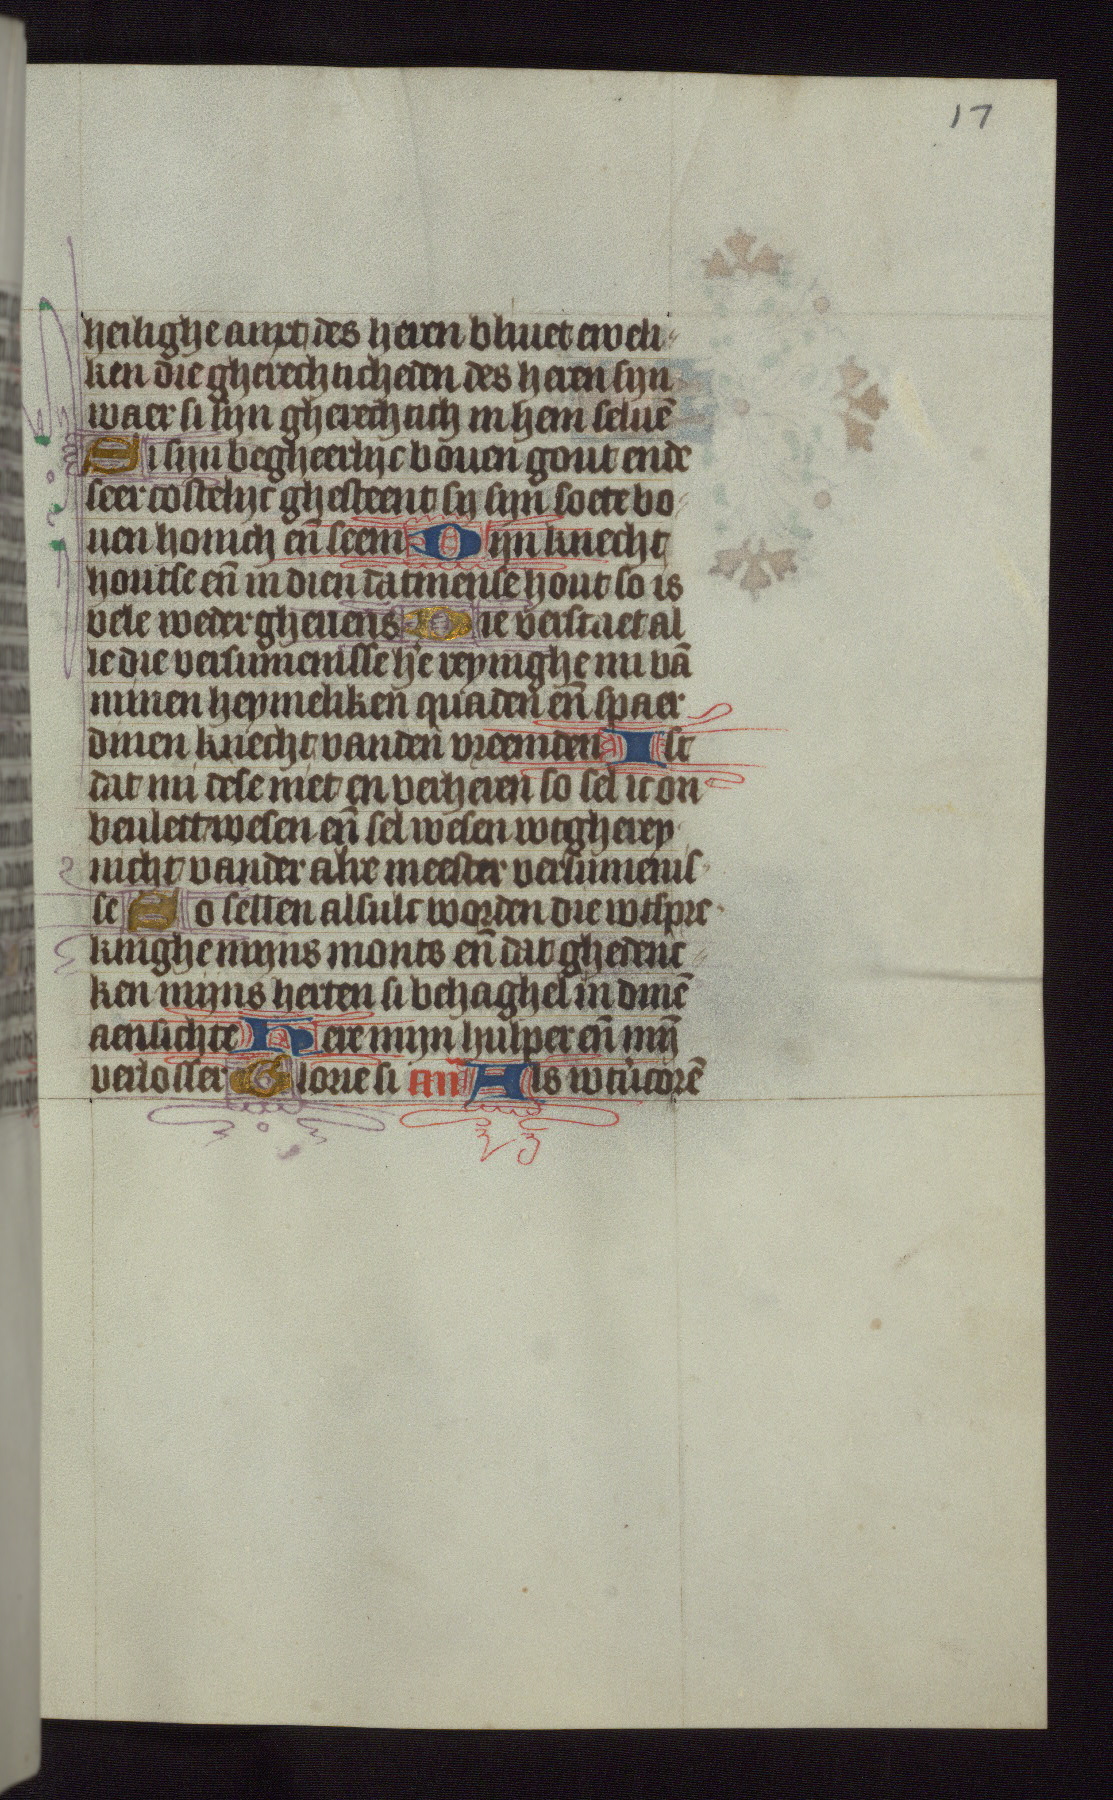 17
heilighe anxt des heren bliuet eweli
ken die gherechticheden des heren sijn
waer si sijn gherechtich in hem seluē
Si sijn begheerlijc bouen gout ende
seer costelijc ghesteent sij sijn soete bo
uen honich eñ seem Dijn knecht
houtse eñ in dien datmense hout so is
vele wedergheuens Wie verstaet al
le die versumenisse h'e reynighe mi vā
minen heymeliken quaden eñ spaer
dinen knecht vanden vreemden Ist
dat mi dese niet en verheren so sel ic on
beulect wesen eñ sel wesen wtgherey
nicht vander alre meester versumenis
se So sellen alsulc worden die wtspre
kinghe mijns monts eñ dat ghedenc
ken mijns herten si behaghel in dinē
aensichte Here mijn hulper eñ mijn
verlosser Glorie si an Als wtucorē